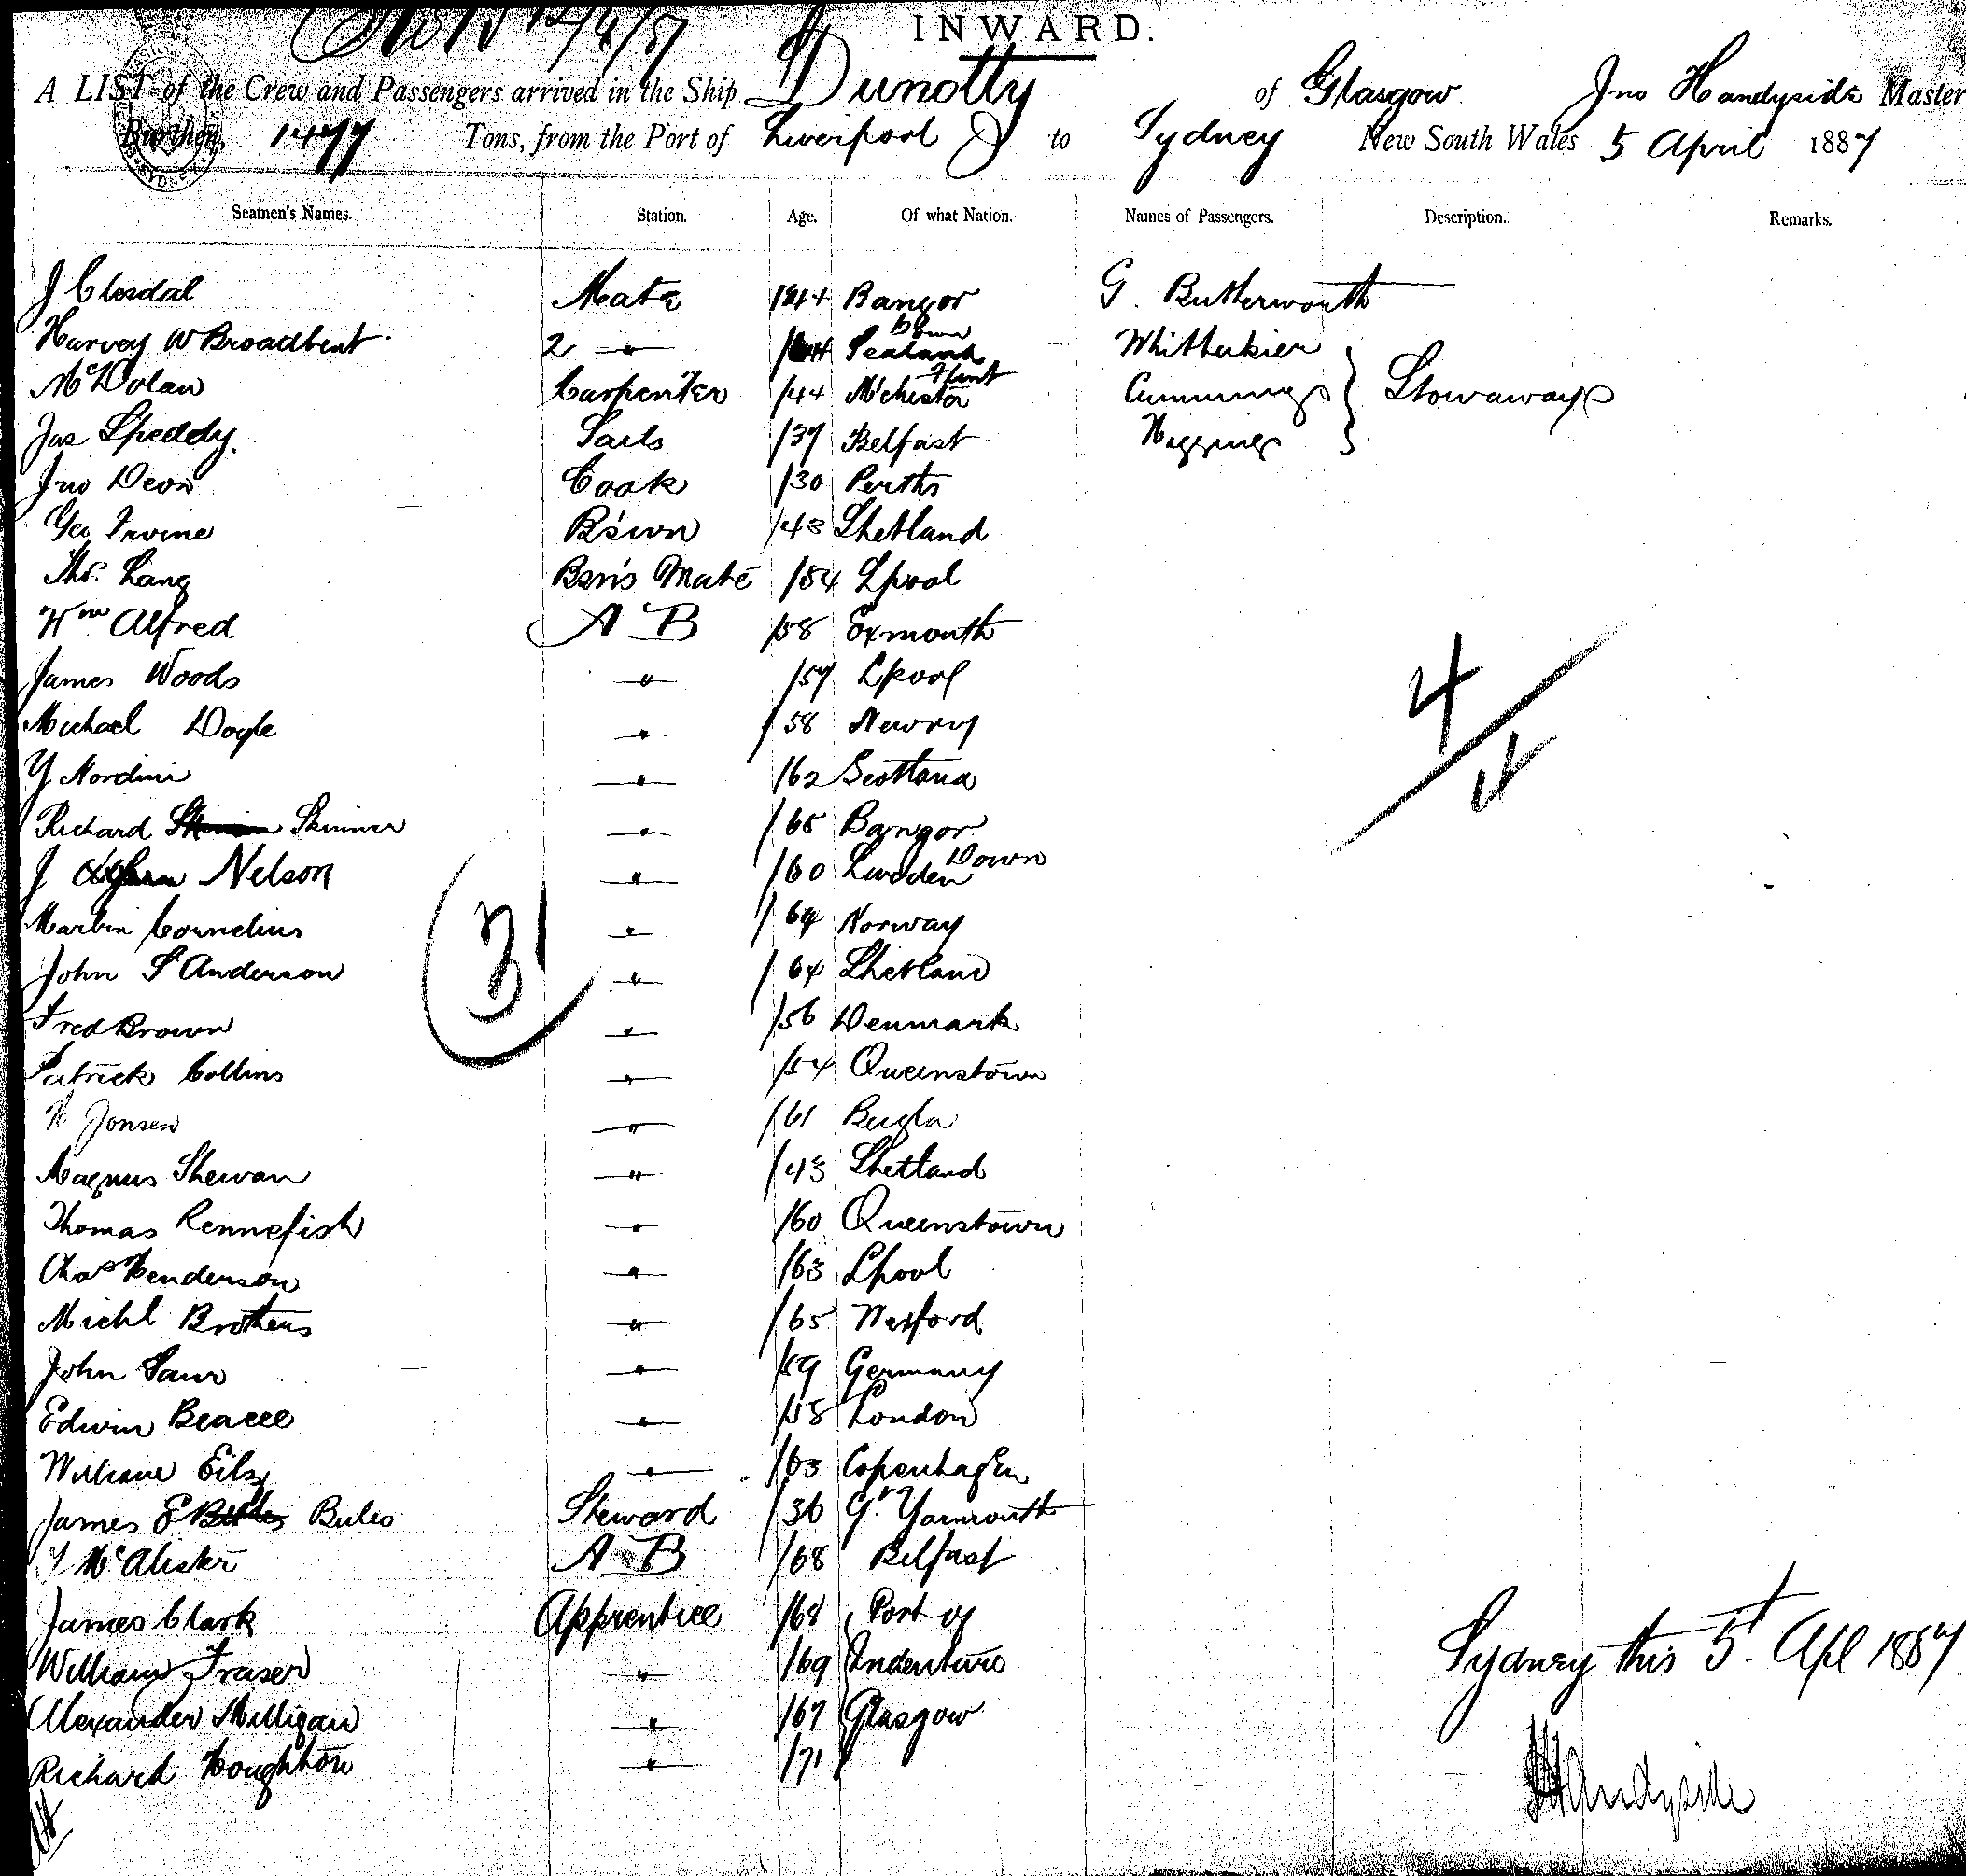 INWARD.
A LIST of the Crew and Passengers arrived in the Ship Dunolly of Glasgow Jno Handyside Master
Burthen, 1477 Tons, from the Port of Liverpool to Sydney New South Wales 5 April 1887
Seamen's Names. Station. Age. Of what Nation. Names of Passengers. Description. Remarks.
J Clesdal Mate /44 Bangor G. Butterworth
Down
Harvey W Broadbent 2 " Sealand Whitherkier
Flint
McDolan Carpenter /44 M'chester Cummings Stowaways
Jas Speddy. Sails /37 Belfast Higgins
Jno Deon Cook /30 Perths
Geo Irvine B'swn /43 Shetland
Thos. Lang Bsn's Mate /54 Lpool
Wm Alfred A B /58 Exmouth
James Woods " /57 Lpool
Michael Doyle " /58 Newry
Y Nordini " /62 Scotland
Richard Skinner " /65 Bangor
Down
J Nelson " /60
Martin Cornelius " /64 Norway
John S Anderson " /64 Shetland
Fred Brown " /56 Denmark
Patrick Collins " /54 Queenstown
Jonsen " /61
Magnus Shewan " /43 Shetland
Thomas Rennefish " /60 Queenstown
Chas Henderson " /63 Lpool
Michl Brothers " /65 Wexford
John Saur " /59 Germany
Edwin Beacee " /58 London
William Eils " /63 Copenhagen
James E Bules Steward /36 Gt. Yarmouth
McAlister A B /68 Belfast
James Clark Apprentice /68 Port of
William Fraser " /69 Indentures
Alexander Milligan " /67 Glasgow
Richard Houghton " /71
31
4/4
Sydney this 5t. Apl 1887
JHandyside